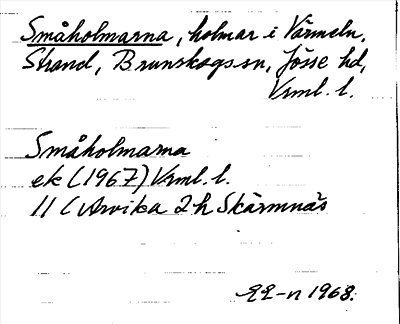 Småholmarna, holmar i Värmeln,
Strand, Brunskogs sn, Jösse hd,
Vrml. l.
Småholmarna
ek (1967) Vrml. l.
11 C Arvika 2 h Skärmnäs
1968.